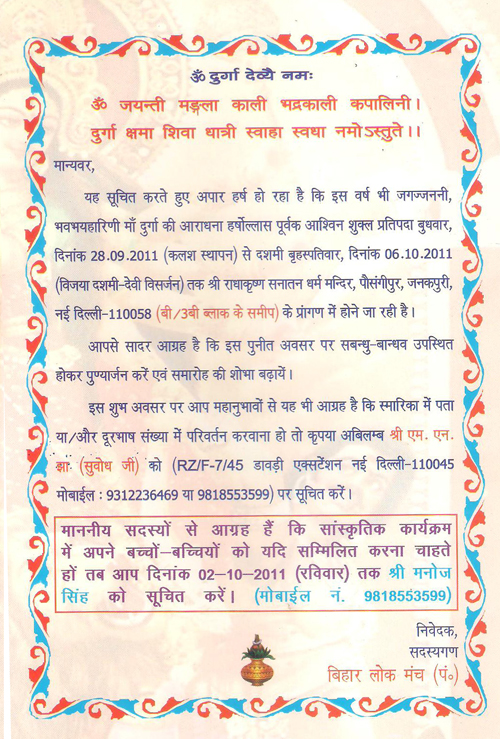 ॐ दुर्गा देव्यै नमः
ॐ जयन्ती मङ्गला काली भद्रकाली कपालिनी।
दुर्गा क्षमा शिवा धात्री स्वाहा स्वधा नमोऽस्तुते।।
मान्यवर,
यह सूचित करते हुए अपार हर्ष हो रहा है कि इस वर्ष भी जगज्जननी,
भवभयहारिणी माँ दुर्गा की आराधना हर्षोल्लास पूर्वक आश्विन शुक्ल प्रतिपदा बुधवार,
दिनांक 28.09.2011 (कलश स्थापन) से दशमी बृहस्पतिवार, दिनांक 06.10.2011
(विजया दशमी-देवी विसर्जन) तक श्री राधाकृष्ण सनातन धर्म मन्दिर, पौसंगीपुर, जनकपुरी,
नई दिल्ली-110058 (बी/3बी ब्लाक के समीप) के प्रांगण में होने जा रही है।
आपसे सादर आग्रह है कि इस पुनीत अवसर पर सबन्धु-बान्धव उपस्थित
होकर पुण्यार्जन करें एवं समारोह की शोभा बढ़ायें।
इस शुभ अवसर पर आप महानुभावों से यह भी आग्रह है कि स्मारिका में पता
या/और दूरभाष संख्या में परिवर्तन करवाना हो तो कृपया अबिलम्ब श्री एम. एन.
झा (सुवोध जी) को (RZ/F-7/45 डावड़ी एक्सटेंशन नई दिल्ली-110045
मोबाईल : 9312236469 या 9818553599) पर सूचित करें।
माननीय सदस्यों से आग्रह हैं कि सांस्कृतिक कार्यक्रम
में अपने बच्चों-बच्चियों को यदि सम्मिलित करना चाहते
हों तब आप दिनांक 02-10-2011 (रविवार) तक श्री मनोज
सिंह को सूचित करें। (मोबाईल नं. 9818553599)
निवेदक,
सदस्यगण
बिहार लोक मंच (पं॰)